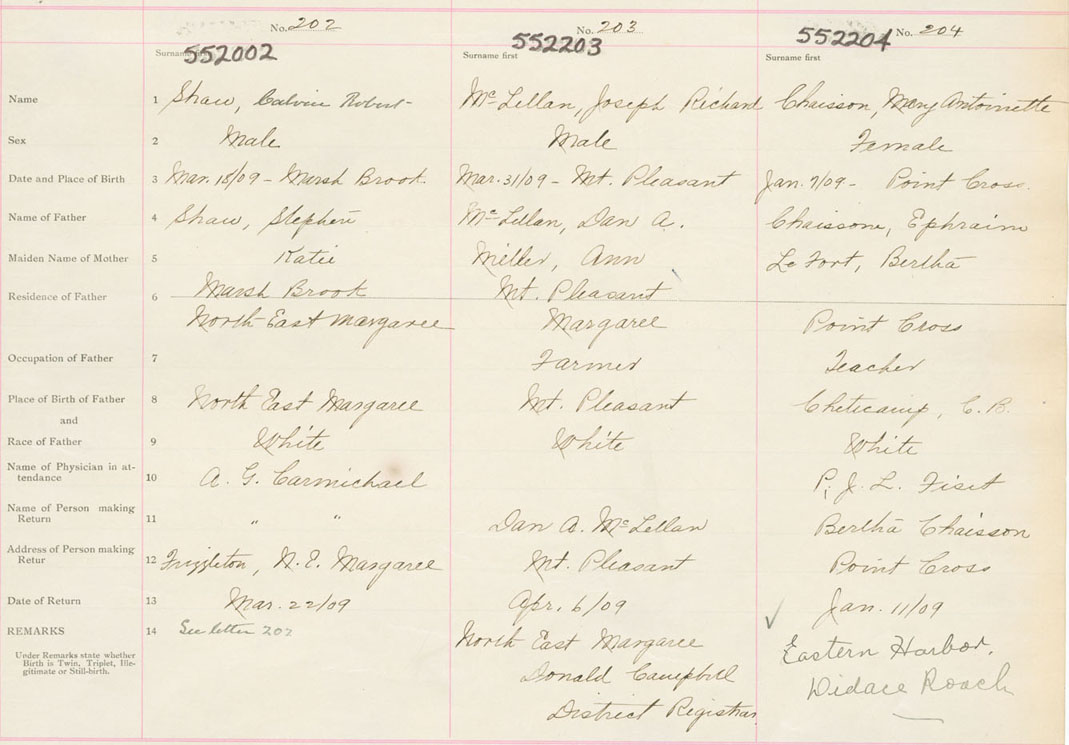 No. 202 No. 203 No. 204
552002 552203 552204
Surname first Surname first Surname first
Name 1 Shaw, Calvin Robert- McLellan, Joseph Richard Chaisson, Mary Antoinette
Sex 2 Male Male Female
Date and Place of Birth 3 Mar. 18/09 - Marsh Brook. Mar. 31/09 - Mt. Pleasant Jan. 7/09 - Point Cross.
Name of Father 4 Shaw, Stephen McLellan, Dan A. Chaissone, Ephraim
Maiden Name of Mother 5 Katie Miller, Ann Le Fort, Bertha
Residence of Father 6 Marsh Brook Mt. Pleasant
North East Margaree Margaree Point Cross
Occupation of Father 7 Farmer Teacher
Place of Birth of Father 8 North East Margaree Mt. Pleasant Cheticamp, C.B.
and
Race of Father 9 White White White
Name of Physician in at-
tendance 10 A. G. Carmichael P. J. L. Fiset
Name of Person making
Return 11 " " Dan A. McLellan Bertha Chaisson
Address of Person making
Retur 12 Frizzleton, N.E. Margaree Mt. Pleasant Point Cross
Date of Return 13 Mar. 22/09 Apr. 6/09 Jan. 11/09
REMARKS 14 See letter 202 North East Margaree Eastern Harbor.
Under Remarks state whether
Birth is Twin, Triplet, Ille-
gitimate or Still-birth.
Donald Campbell Didace Roach
District Registrar